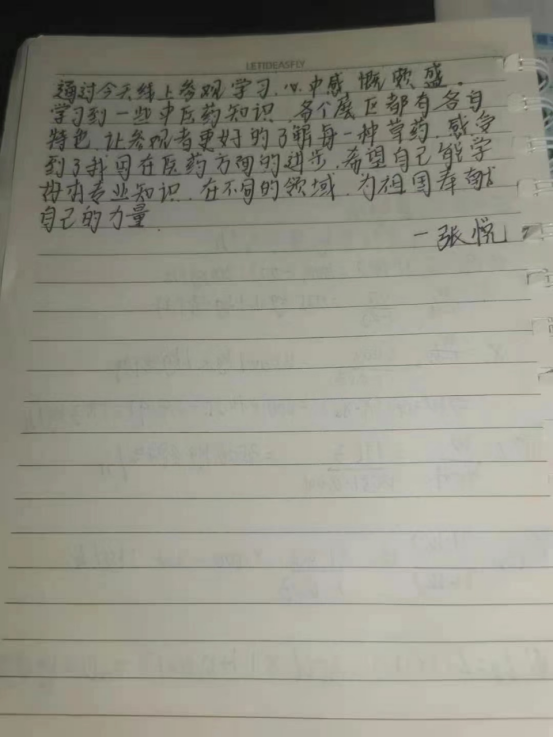 LETIDEASFLY
通过今天线上参观学习,心中感慨颇盛,
学习到一些中医药知识,各个展区都有各自
特色,让参观者更好的了解每一种草药,感受
到了我国在医药方面的进步,希望自己能学
好本专业知识,在不同的领域,为祖国奉献
自己的力量.
—张悦